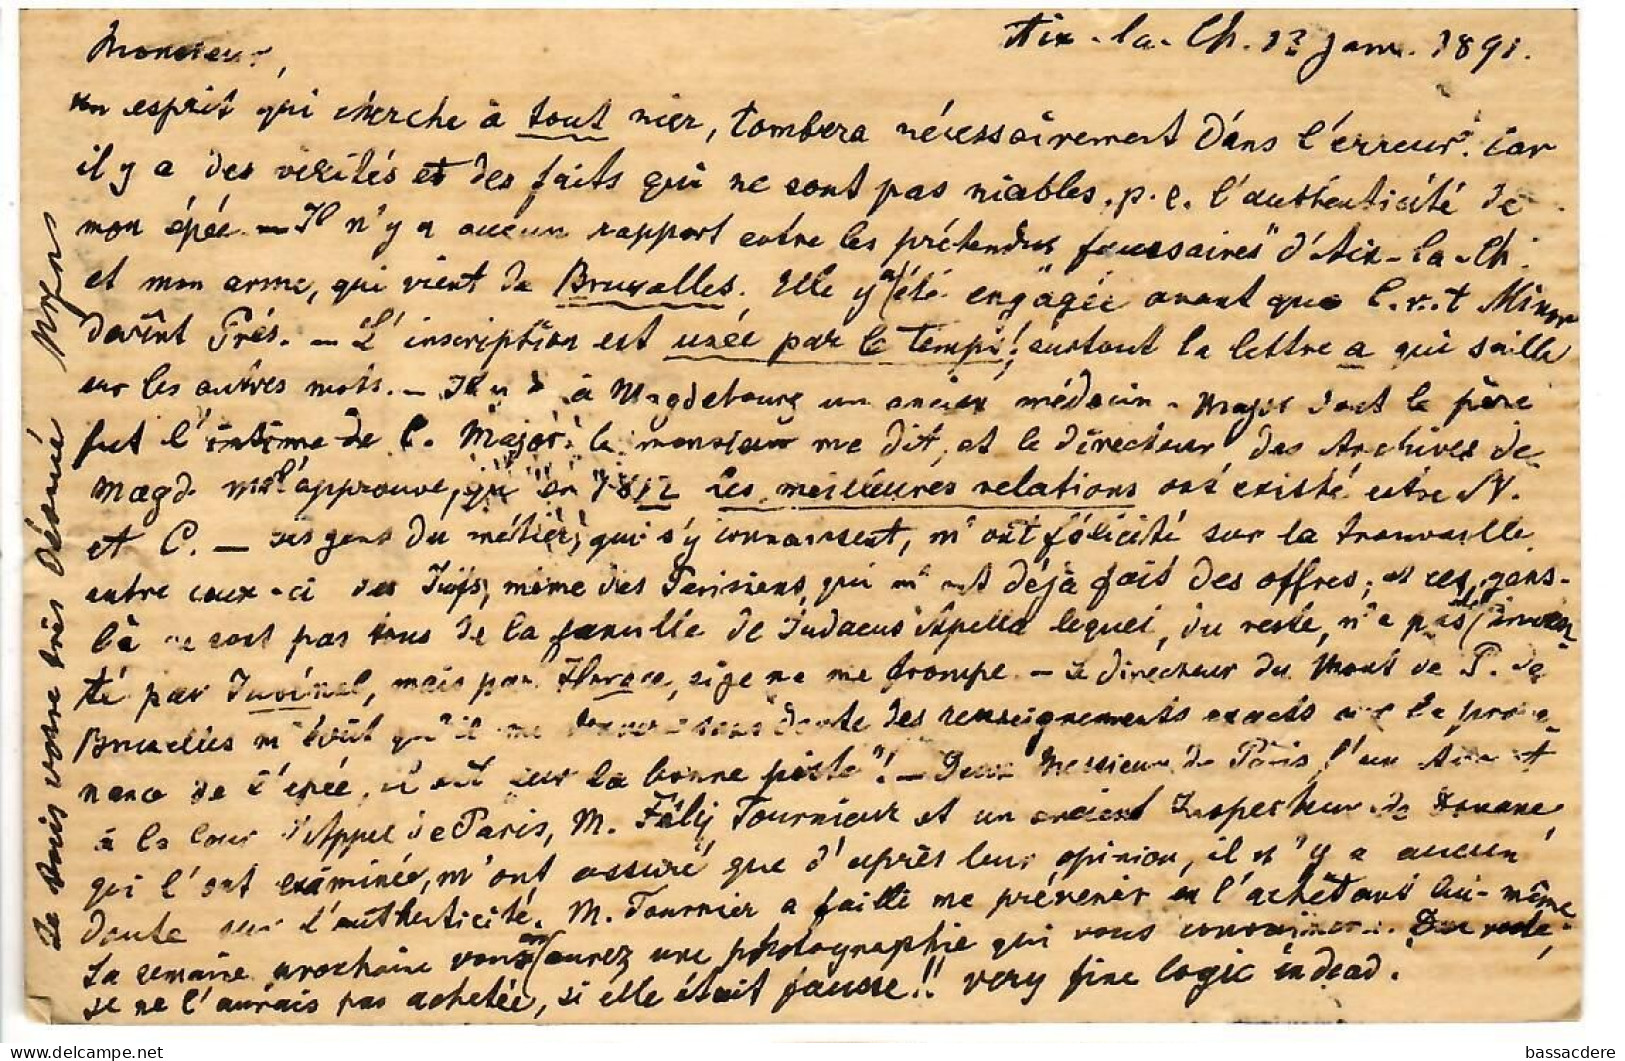 Aix-la-Ch. 13 janv. 1891.
Monsieur,
un esprit qui cherche à tout nier, tombera nécessairement dans l'erreur. car
il y a des vérités et des faits qui ne sont pas niables. p. e. l'authenticité de
mon épée. — Il n'y a aucun rapport entre les prétendus "faussaires" d'Aix-la-Ch.
et mon arme, qui vient de Bruxelles. Elle y a été engagée avant que
devînt Prés. — L'inscription est usée par le temps! surtout la lettre a qui saille
sur les autres mots. — Il y a à Magdebourg un ancien médecin-Major dont le père
fut l'intime de C. Major: le monsieur me dit, et le directeur des Archives de
Magd. l'approuve, qu'en 1812 les meilleures relations ont existé entre N.
et C. — des gens du métier, qui s'y connaissent, m'ont félicité sur la trouvaille
entre ceux-ci des Juifs, même des Parisiens, qui m'ont déjà fait des offres; et ces gens-
là ne sont pas tous de la famille de Judaeus Apella lequel, du reste, n'a pas été inven-
té par Juvénal, mais par Horace, si je ne me trompe. — Le directeur du Mont de P. de
Bruxelles m'écrit qu'il me donnera sans doute des renseignements exacts sur la prove-
nance de l'épée, il est sur la bonne piste"! — Deux Messieurs de Paris, l'un Avocat
à la Cour d'Appel de Paris, M. Félix Tournier et un ancien Inspecteur de Douane,
qui l'ont examinée, m'ont assuré que d'après leur opinion, il n'y a aucun
doute sur l'authenticité. M. Tournier a failli me prévenir en l'achetant lui-même.
La semaine prochaine vous en aurez une photographie qui vous convaincra. Du reste,
je ne l'aurais pas achetée, si elle était fausse!! very fine logic indead.
Je suis votre très dévoué
bassacdere